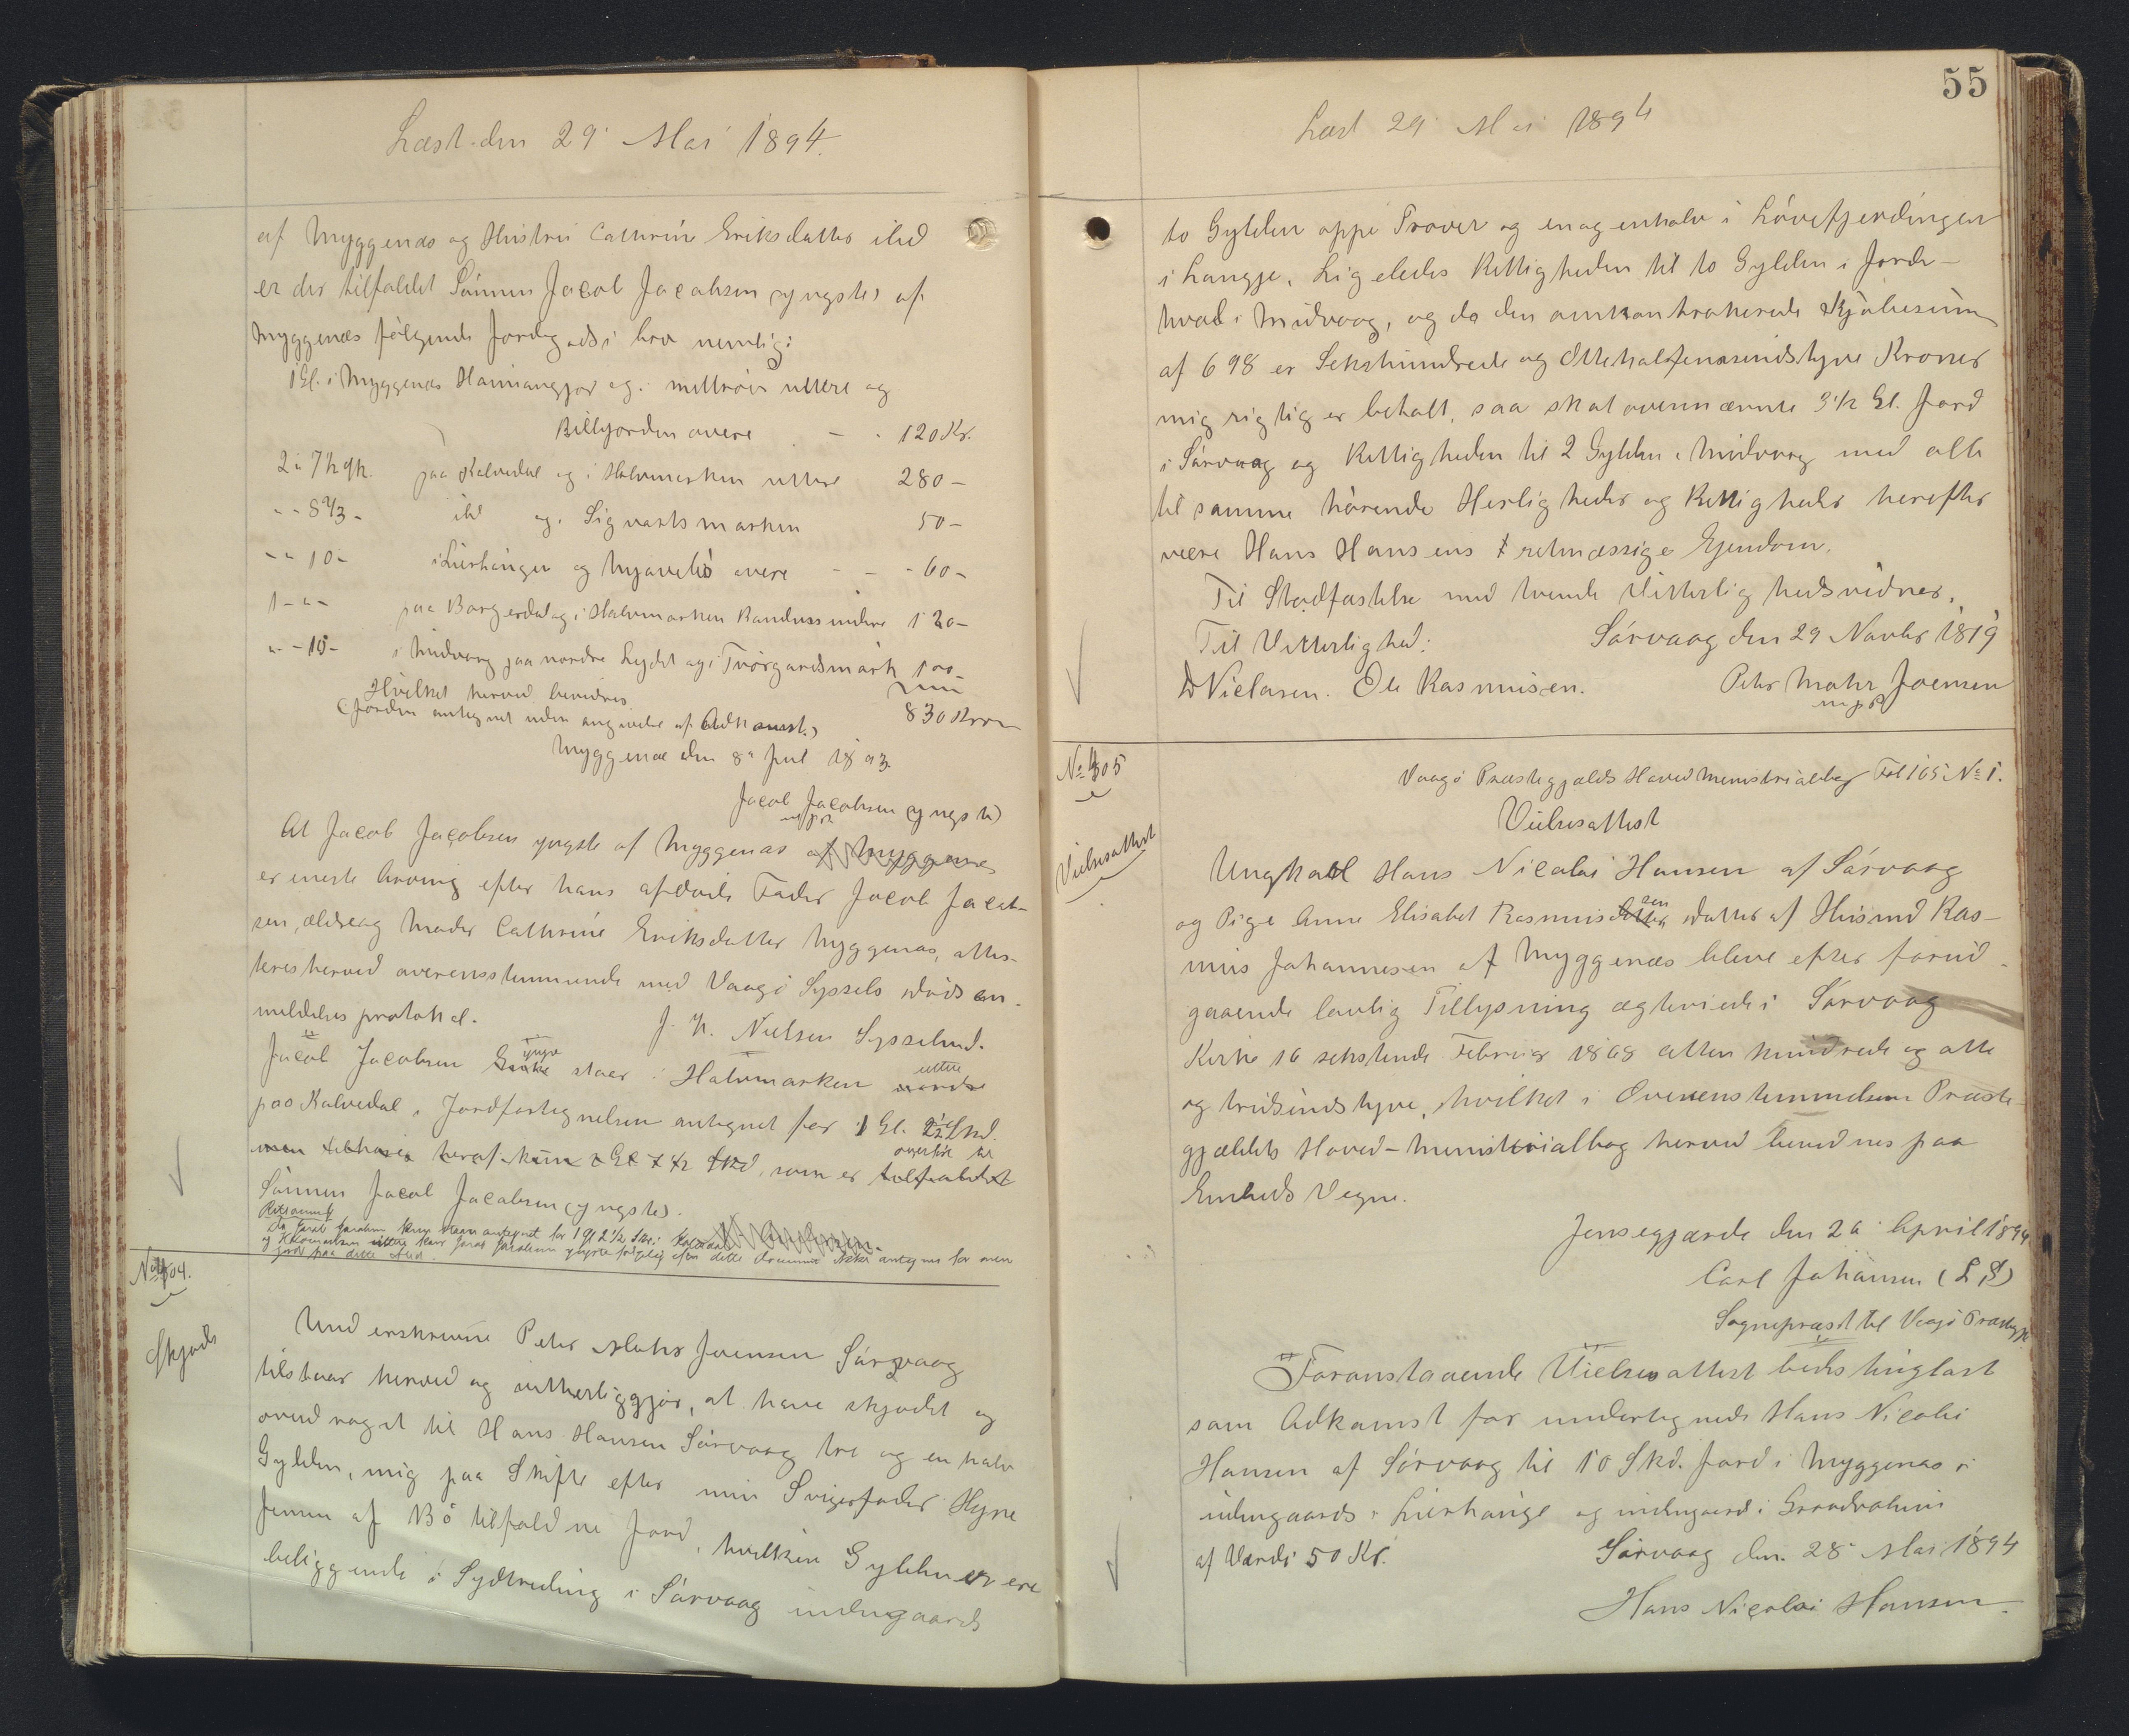 Læst den 29' Mai 1894.
af Myggenæs og Hustrui Cathrine Eriksdatter ibid
er der tilfaldet Sønnen Jacob Jacobsen (yngste) af
Myggenæs følgende Jordegods i Arv nemlig:
1 Gl. i Myggenæs Hamangjor og
Billjorden øvere - - 120 Kr.
2 u 7½ gk. paa Kalvedal og i Halvmarken uttere 280 -
- - 8⅓ - ibd og. Sigvartsmarken 50 -
- - 10 - i Lierhangen og øvere - - - 60 -
1 - " - paa Borgerdal og i Halvmarken indere 120 -
" - 10 - i Midvaag paa nordre Lydet og i Tvørgardsmark 100 -
Hvilket herved bevidnes
(Jorden antegnet uden angivelse af Adkomst.) 830 Kroner
Myggenæs den 8' Juli 1893.
Jacob Jacobsen (yngste)
At Jacob Jacobsen yngste af Myggenæs af Myggenæs
er eneste Arving efter hans afdøde Fader Jacob Jacob-
sen, ældre og Moder Cathrine Eriksdatter Myggenæs, attes-
teres herved overensstemmende med Vaagø Syssels Døds an-
meldelses protokol.
J. N. Nielsen Sysselmd.
Jacob Jacobsen yngre staar i Halvmarken uttere nordre
paa Kalvedal i Jordfortegnelsen antegnet for 1 Gl. 2½ Skd.
men tilhører heraf kun 1 Gl 7½ Skd, som er overført til tilfaldet
Sønnen Jacob Jacobsen (yngste).
Retsanmk
Da Jacob Jacobsen kun staar antegnet for 1 Gl 2½ Skd. i Kalvedal
og Halvmarken uttere kan Jacob Jacobsen yngste følgelig efter dette Document ikke antegnes for mere
Jord paa dette Sted
No 404.
Skjøde
Underskrevne Peter Mohr Joensen Sørvaag
tilstaar herved og vitterliggjør, at have skjødet og
overdraget til Hans Hansen Sørvaag tre og en halv
Gylden, mig paa Skifte efter min Svigerfader Hejne
Jensen af Bø tilfaldne Jord, hvilken Gylden er ere
beliggende i Sydtreding i Sørvaag indengaards
55
Læst 29' Mai 1894
to Gylden oppi Trøver og en og enhalv i Løvefjerdingen
i Langje. Ligeledes Rettigheden til to Gylden i Jorde-
hvad i Midvaag, og da den omkontraherede Kjøbesum
af 698 er Sekshundrede og Ottehalfemsindstyve Kroner
mig rigtig er betalt, saa skal ovennævnte 3½ Gl. Jord
i Sørvaag og Rettigheden til 2 Gylden i Midvaag med alle
til samme hørende Herligheder og Rettigheder herefter
være Hans Hansens retmæssige Ejendom.
Til Stadfæstelse med tvende Vitterlighedsvidner.
Sørvaag den 29 Novbr 1819
Til Vitterlighed:
D Nielasen. Ole Rasmusen. Peter Mohr Joensen
mpp
No 405
Vielsesattest
Vaagø Præstegjælds Hoved Ministerialbog Fol 165 No 1.
Vielsesattest
Ungkarl Hans Nicolai Hansen af Sørvaag
og Pige Anne Elisabet Rasmussen datter Datter af Husmd Ras-
mus Johannesen af Myggenæs bleve efter forud-
gaaende lovlig Tillysning ægteviede i Sørvaag
Kirke 16 sekstende Februar 1868 atten hundrede og otte
og tresindstyve, hvilket i Overensstemmelse m Præste-
gjældets Hoved-Ministerialbog herved bevidnes paa
Embeds Vegne.
Jensegjærde den 26' April 1894
Carl Johansen (L.S)
Sognepræst til Vaagø Præstegj.
Foranstaaende Vielsesattest bedes tinglæst
som Adkomst for undertegnede Hans Nicolai
Hansen af Sørvaag til 10 Skd. Jord i Myggenæs i
udengaards i Lierhange og indengaards i
af Værdi 50 Kr.
Sørvaag den. 28' Mai 1894
Hans Nicolai Hansen.